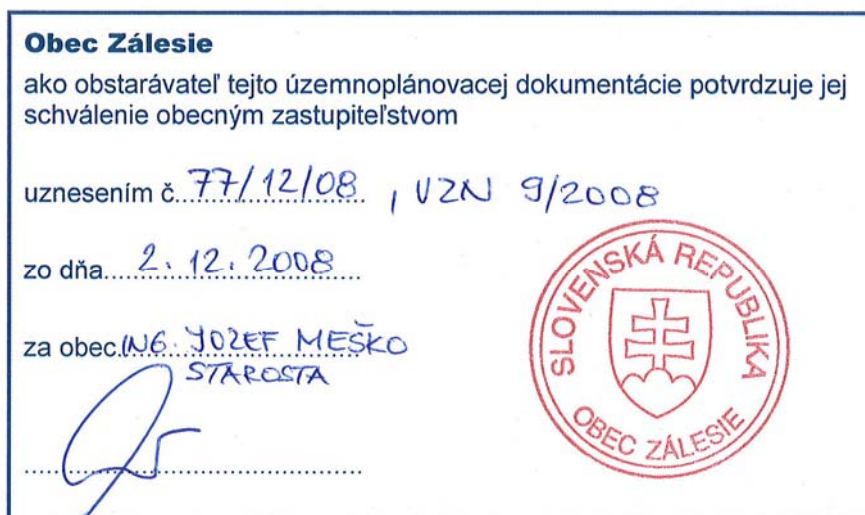 Obec Zálesie
ako obstarávateľ tejto územnoplánovacej dokumentácie potvrdzuje jej
schválenie obecným zastupiteľstvom
uznesením č. 77/12/08 , VZN 9/2008
zo dňa 2. 12. 2008
za obec ING. JOZEF MEŠKO
STAROSTA
SLOVENSKÁ REPUBLIKA
OBEC ZÁLESIE